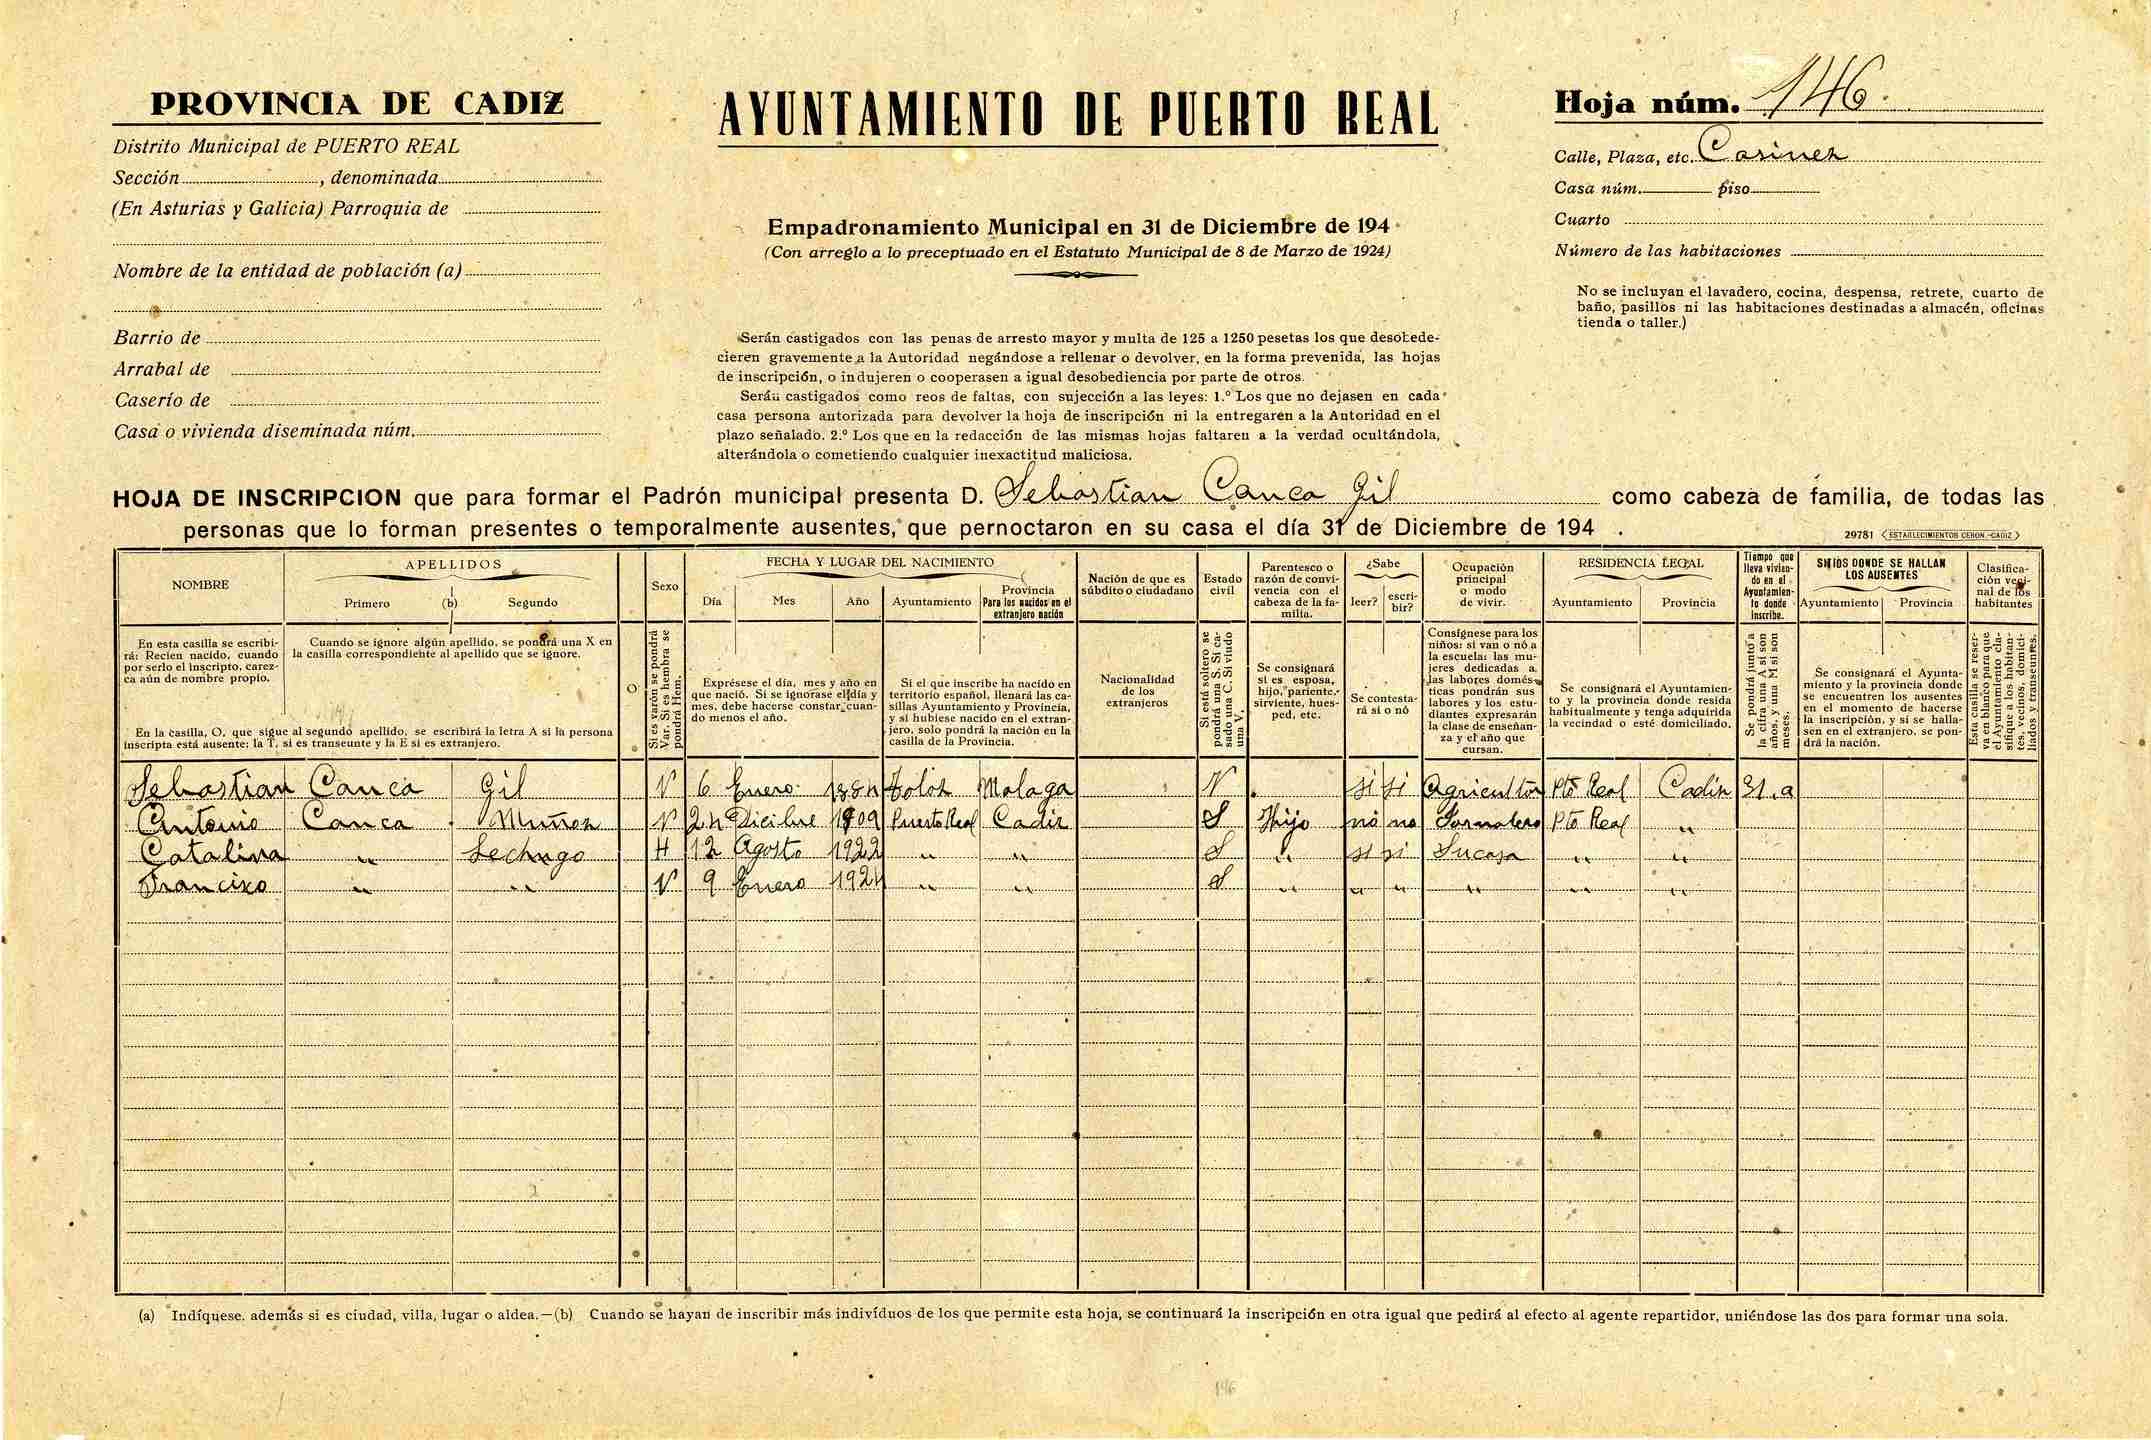 PROVINCIA DE CADIZ
Distrito Municipal de PUERTO REAL
Sección , denominada
(En Asturias y Galicia) Parroquia de
Nombre de la entidad de población (a)
Barrio de
Arrabal de
Caserío de
Casa o vivienda diseminada núm.
AYUNTAMIENTO DE PUERTO REAL
Empadronamiento Municipal en 31 de Diciembre de 194
(Con arreglo a lo preceptuado en el Estatuto Municipal de 8 de Marzo de 1924)
Serán castigados con las penas de arresto mayor y multa de 125 a 1250 pesetas los que desobede-
cieren gravemente a la Autoridad negándose a rellenar o devolver, en la forma prevenida, las hojas
de inscripción, o indujeren o cooperasen a igual desobediencia por parte de otros.
Serán castigados como reos de faltas, con sujección a las leyes: 1.º Los que no dejasen en cada
casa persona autorizada para devolver la hoja de inscripción ni la entregaren a la Autoridad en el
plazo señalado. 2.º Los que en la redacción de las mismas hojas faltaren a la verdad ocultándola,
alterándola o cometiendo cualquier inexactitud maliciosa.
Hoja núm. 146
Calle, Plaza, etc. Casines
Casa núm. piso
Cuarto
Número de las habitaciones
No se incluyan el lavadero, cocina, despensa, retrete, cuarto de
baño, pasillos ni las habitaciones destinadas a almacén, oficinas
tienda o taller.)
HOJA DE INSCRIPCION que para formar el Padrón municipal presenta D. Sebastian Cauca Gil como cabeza de familia, de todas las
personas que lo forman presentes o temporalmente ausentes, que pernoctaron en su casa el día 31 de Diciembre de 194 .
29781 ESTABLECIMIENTOS CERON.-CADIZ
NOMBRE
APELLIDOS
Primero (b) Segundo
O
Sexo
FECHA Y LUGAR DEL NACIMIENTO
Día Mes Año Ayuntamiento
Provincia
Para los nacidos en el
extranjero nación
Nación de que es
súbdito o ciudadano
Estado
civil
Parentesco o
razón de convi-
vencia con el
cabeza de la fa-
milia.
¿Sabe
leer? escri-
bir?
Ocupación
principal
o modo
de vivir.
RESIDENCIA LEGAL
Ayuntamiento Provincia
Tiempo que
lleva vivien-
do en el
Ayuntamien-
to donde
inscribe.
SITIOS DONDE SE HALLAN
LOS AUSENTES
Ayuntamiento Provincia
Clasifica-
ción veci-
nal de los
habitantes
En esta casilla se escribi-
rá: Recien nacido, cuando
por serlo el inscripto, carez-
ca aún de nombre propio.
Cuando se ignore algún apellido, se pondrá una X en
la casilla correspondiente al apellido que se ignore.
En la casilla, O, que sigue al segundo apellido, se escribirá la letra A si la persona
inscripta está ausente: la T, si es transeunte y la E si es extranjero.
Si es varón se pondrá
Var. Si es hembra se
pondrá Hem.
Exprésese el día, mes y año en
que nació. Si se ignorase el día y
mes, debe hacerse constar, cuan-
do menos el año.
Si el que inscribe ha nacido en
territorio español, llenará las ca-
sillas Ayuntamiento y Provincia,
y si hubiese nacido en el extran-
jero, solo pondrá la nación en la
casilla de la Provincia.
Nacionalidad
de los
extranjeros
Si está soltero se
pondrá una S. Si ca-
sado una C. Si viudo
una V.
Se consignará
si es esposa,
hijo, pariente,
sirviente, hues-
ped, etc.
Se contesta-
rá sí o nó
Consígnese para los
niños: si van o nó a
la escuela: las mu-
jeres dedicadas a
las labores domés-
ticas pondrán sus
labores y los estu-
diantes expresarán
la clase de enseñan-
za y el año que
cursan.
Se consignará el Ayuntamien-
to y la provincia donde resida
habitualmente y tenga adquirida
la vecindad o esté domiciliado.
Se pondrá junto a
la cifra una A si son
años, y una M si son
meses.
Se consignará el Ayunta-
miento y la provincia donde
se encuentren los ausentes
en el momento de hacerse
la inscripción, y si se halla-
sen en el extranjero, se pon-
drá la nación.
Esta casilla se reser-
va en blanco para que
el Ayuntamiento cla-
sifique a los habitan-
tes, vecinos, domici-
liados y transeuntes.
Sebastian Cauca Gil V 6 Enero 1884 Tolox Malaga V si si Agricultor Pto Real Cadiz 31.a
Antonio Cauca Muñoz V 24 Dicibre 1909 Puerto Real Cadiz S Hijo no no Jornalero Pto Real "
Catalina " Lechugo H 12 Agosto 1922 " " S " si si Sucasa " "
Francizco " " V 9 Enero 1924 " " S " " " " " "
(a) Indíquese. además si es ciudad, villa, lugar o aldea.—(b) Cuando se hayan de inscribir más indivíduos de los que permite esta hoja, se continuará la inscripción en otra igual que pedirá al efecto al agente repartidor, uniéndose las dos para formar una sola.
146